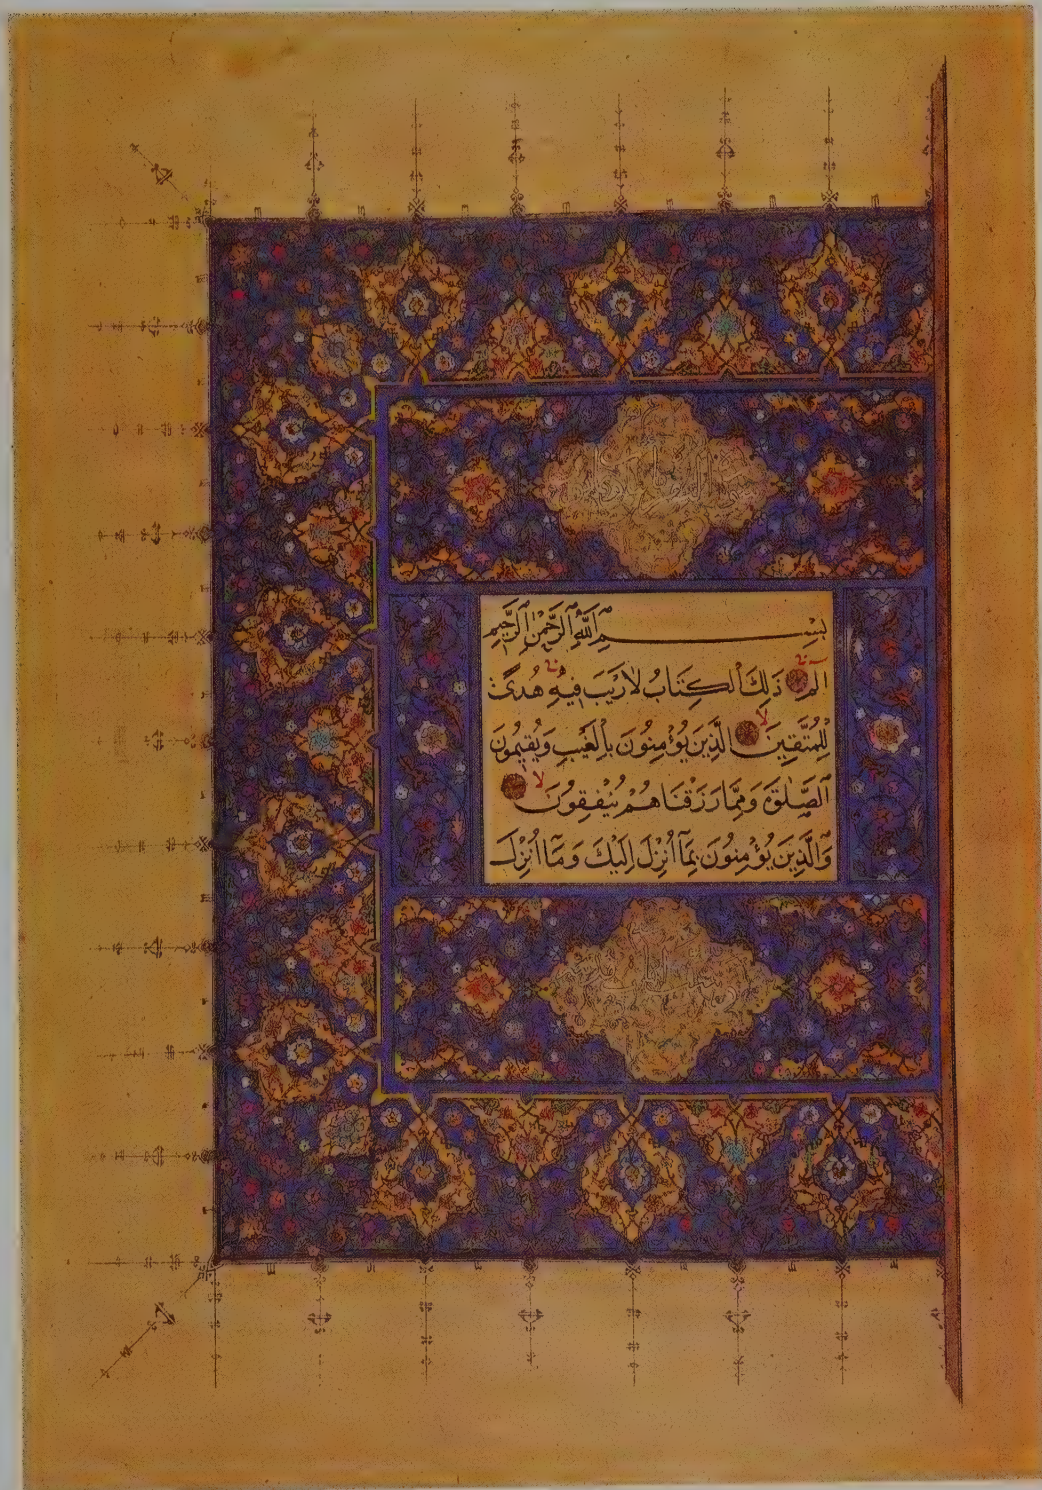 بِسْمِ ٱللَّهِ ٱلرَّحْمٰنِ ٱلرَّحِيمِ
الٓمٓ ذٰلِكَ ٱلْكِتَابُ لَا رَيْبَ فِيهِ هُدًى
لِلْمُتَّقِينَ لا الَّذِينَ يُؤْمِنُونَ بِالْغَيْبِ وَيُقِيمُونَ
ٱلصَّلٰوةَ وَمِمَّا رَزَقْنَاهُمْ يُنْفِقُونَ لا
وَالَّذِينَ يُؤْمِنُونَ بِمَآ اُنْزِلَ اِلَيْكَ وَمَآ اُنْزِلَ